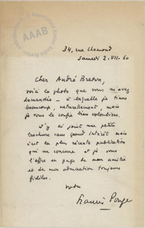 AAAB
34, rue Lhomond
Samedi 2-VII-60
Cher André Breton,
voilà la photo que vous m'avez
demandée - à laquelle je tiens
beaucoup, naturellement, mais
je vous la confie bien volontiers.
J'y ai joint une petite
brochure sans grand intérêt mais
c'est la plus récente publication
qui me concerne et je vous
l'offre en gage de mon amitié
et de mon admiration toujours
fidèles.
votre
Francis Ponge